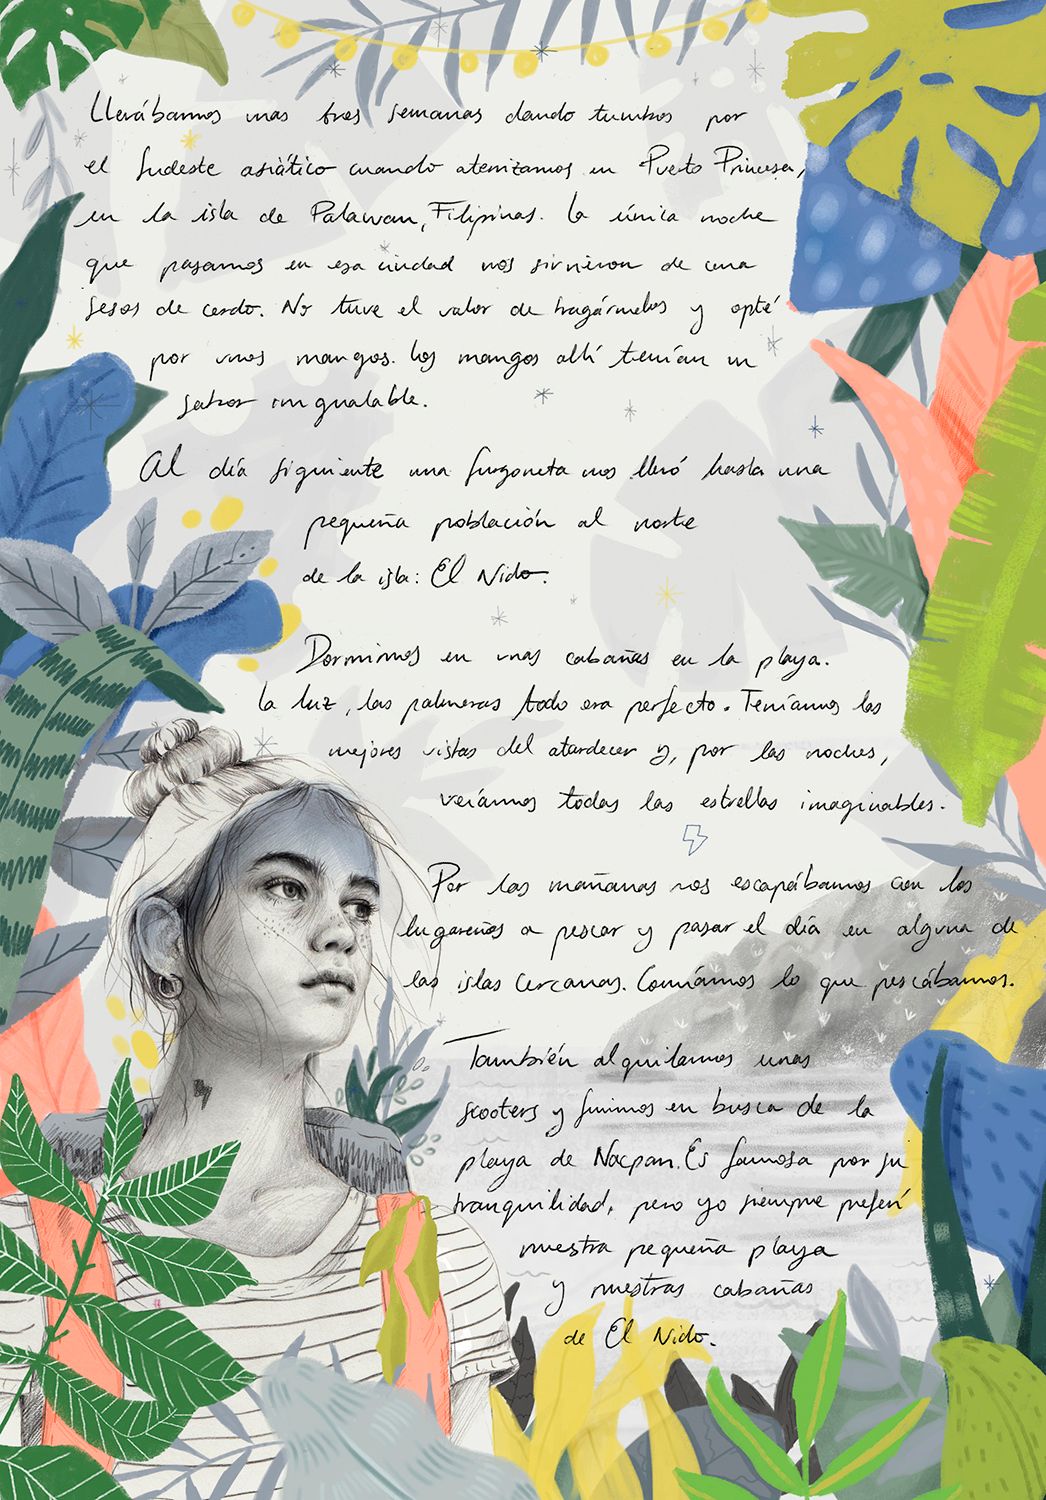 Llevábamos unas tres semanas dando tumbos por
el sudeste asiático cuando aterrizamos en Puerto Princesa,
en la isla de Palawan, Filipinas. La única noche
que pasamos en esa ciudad nos sirvieron de cena
sesos de cerdo. No tuve el valor de tragármelos y opté
por unos mangos. Los mangos allí tenían un
sabor inigualable.
Al día siguiente una furgoneta nos llevó hasta una
pequeña población al norte
de la isla: El Nido.
Dormimos en unas cabañas en la playa.
La luz, las palmeras todo era perfecto. Teníamos las
mejores vistas del atardecer y, por las noches,
veíamos todas las estrellas imaginables.
Por las mañanas nos escapábamos con los
lugareños a pescar y pasar el día en alguna de
las islas cercanas. Comíamos lo que pescábamos.
También alquilamos unas
scooters y fuimos en busca de la
playa de Nacpan. Es famosa por su
tranquilidad, pero yo siempre preferí
nuestra pequeña playa
y nuestras cabañas
de El Nido.